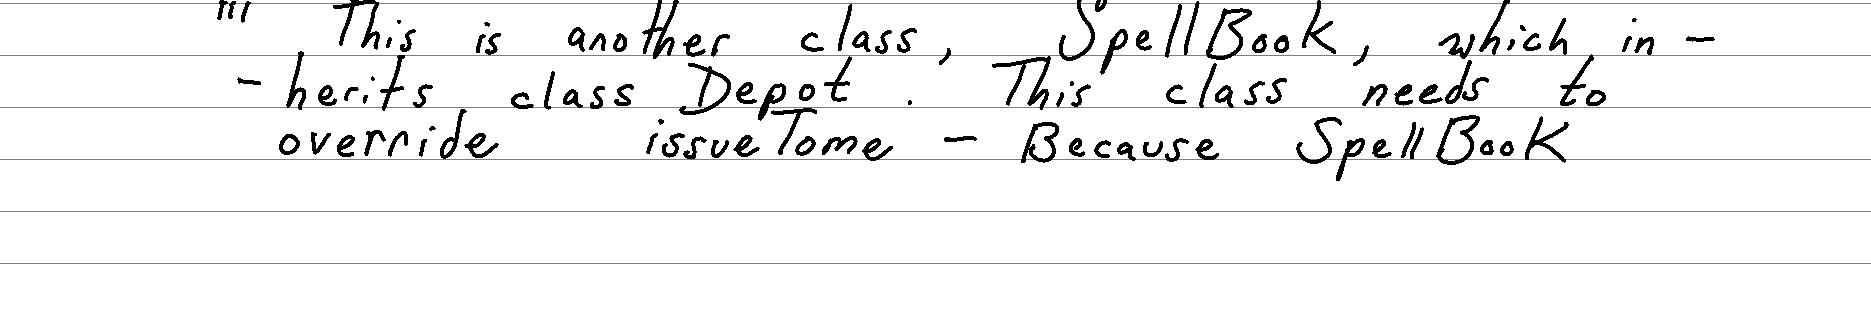 ''' This is another class, SpellBook, which in-
-herits class Depot. This class needs to
override issueTome - Because SpellBook